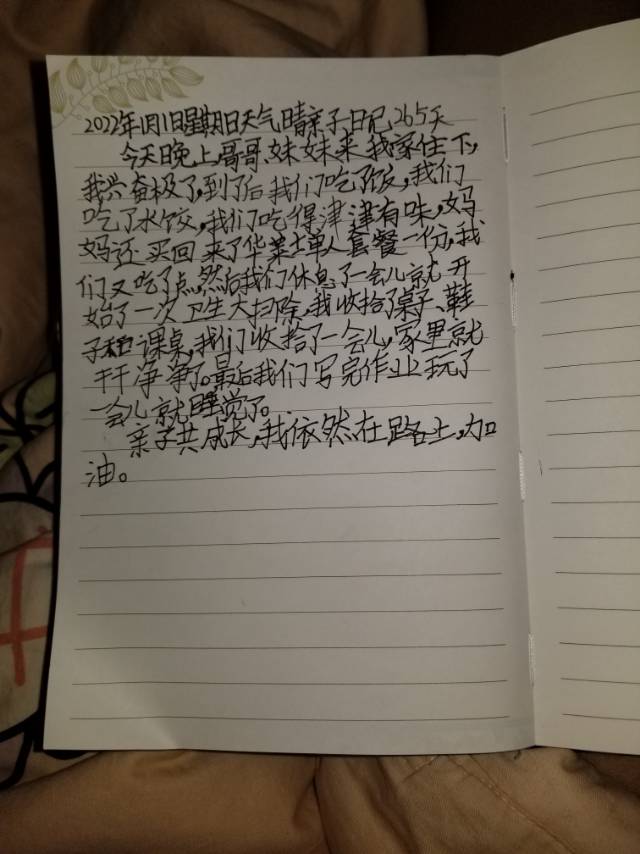 2022年1月1日星期日天气晴亲子日记265天
今天晚上,哥哥、妹妹来我家住下,
我兴奋极了,到了后我们吃了饭,我们
吃了水饺,我们吃得津津有味,妈
妈还买回来了华莱士单人套餐一份,我
们又吃了点,然后我们休息了一会儿就开
始了一次卫生大扫除,我收拾了桌子、鞋
子和课桌,我们收拾了一会儿,家里就
干干净净了。最后我们写完作业玩了
一会儿就睡觉了。
亲子共成长,我依然在路上,加
油。